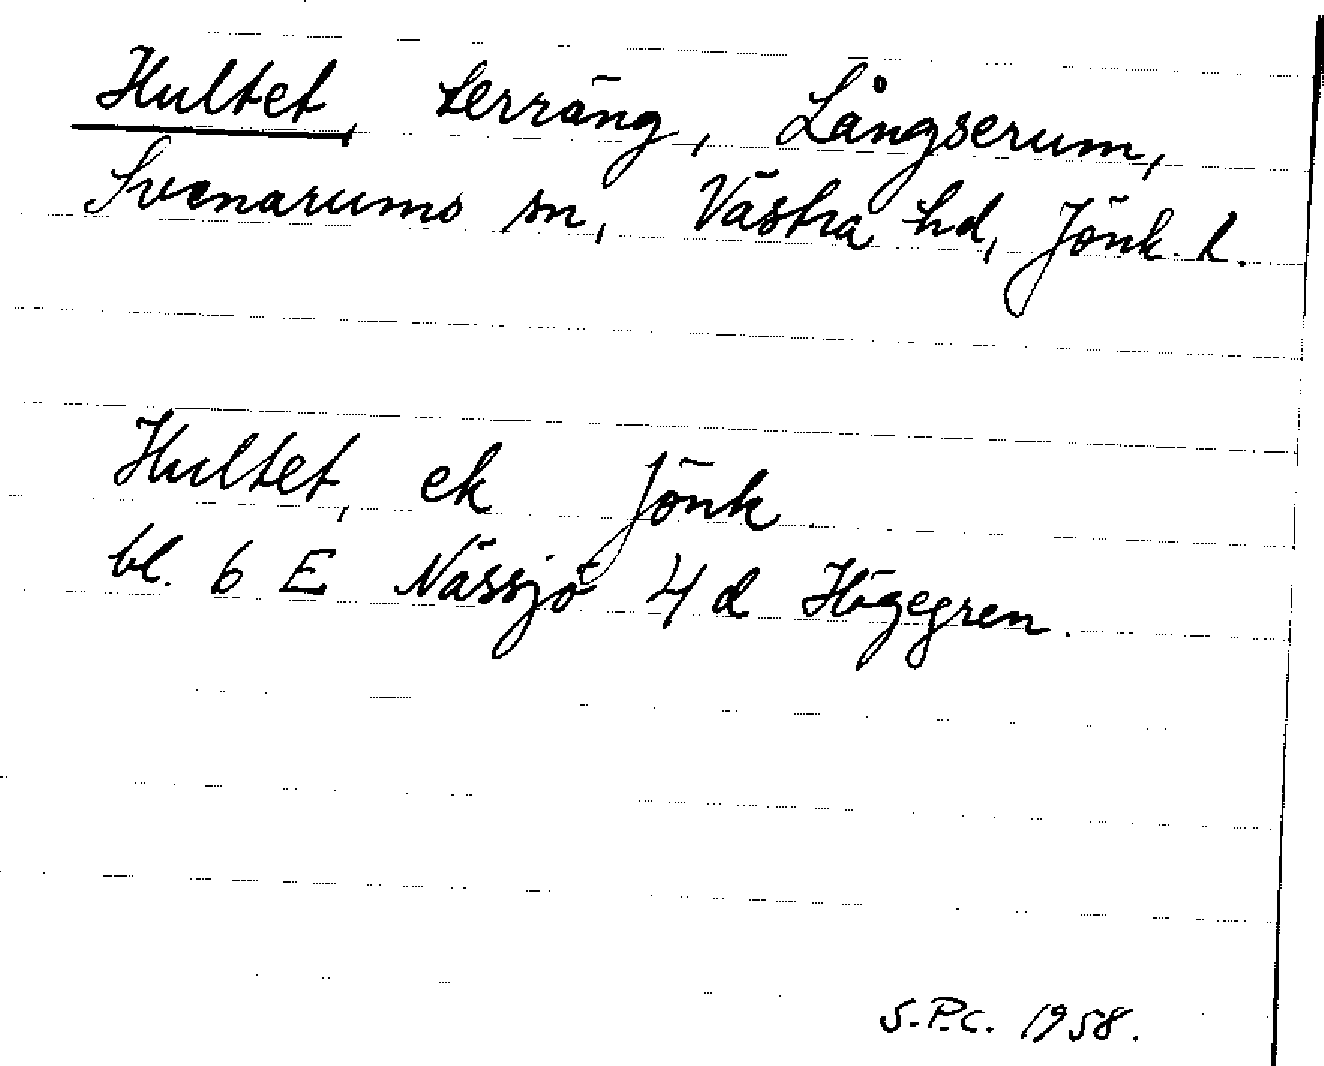 Hultet, terräng, Långserum,
Svenarums sn, Västra hd, Jönk. l.
Hultet, ek Jönk
bl. 6 E Nässjö 4 d Högegren.
S.P.C. 1958.